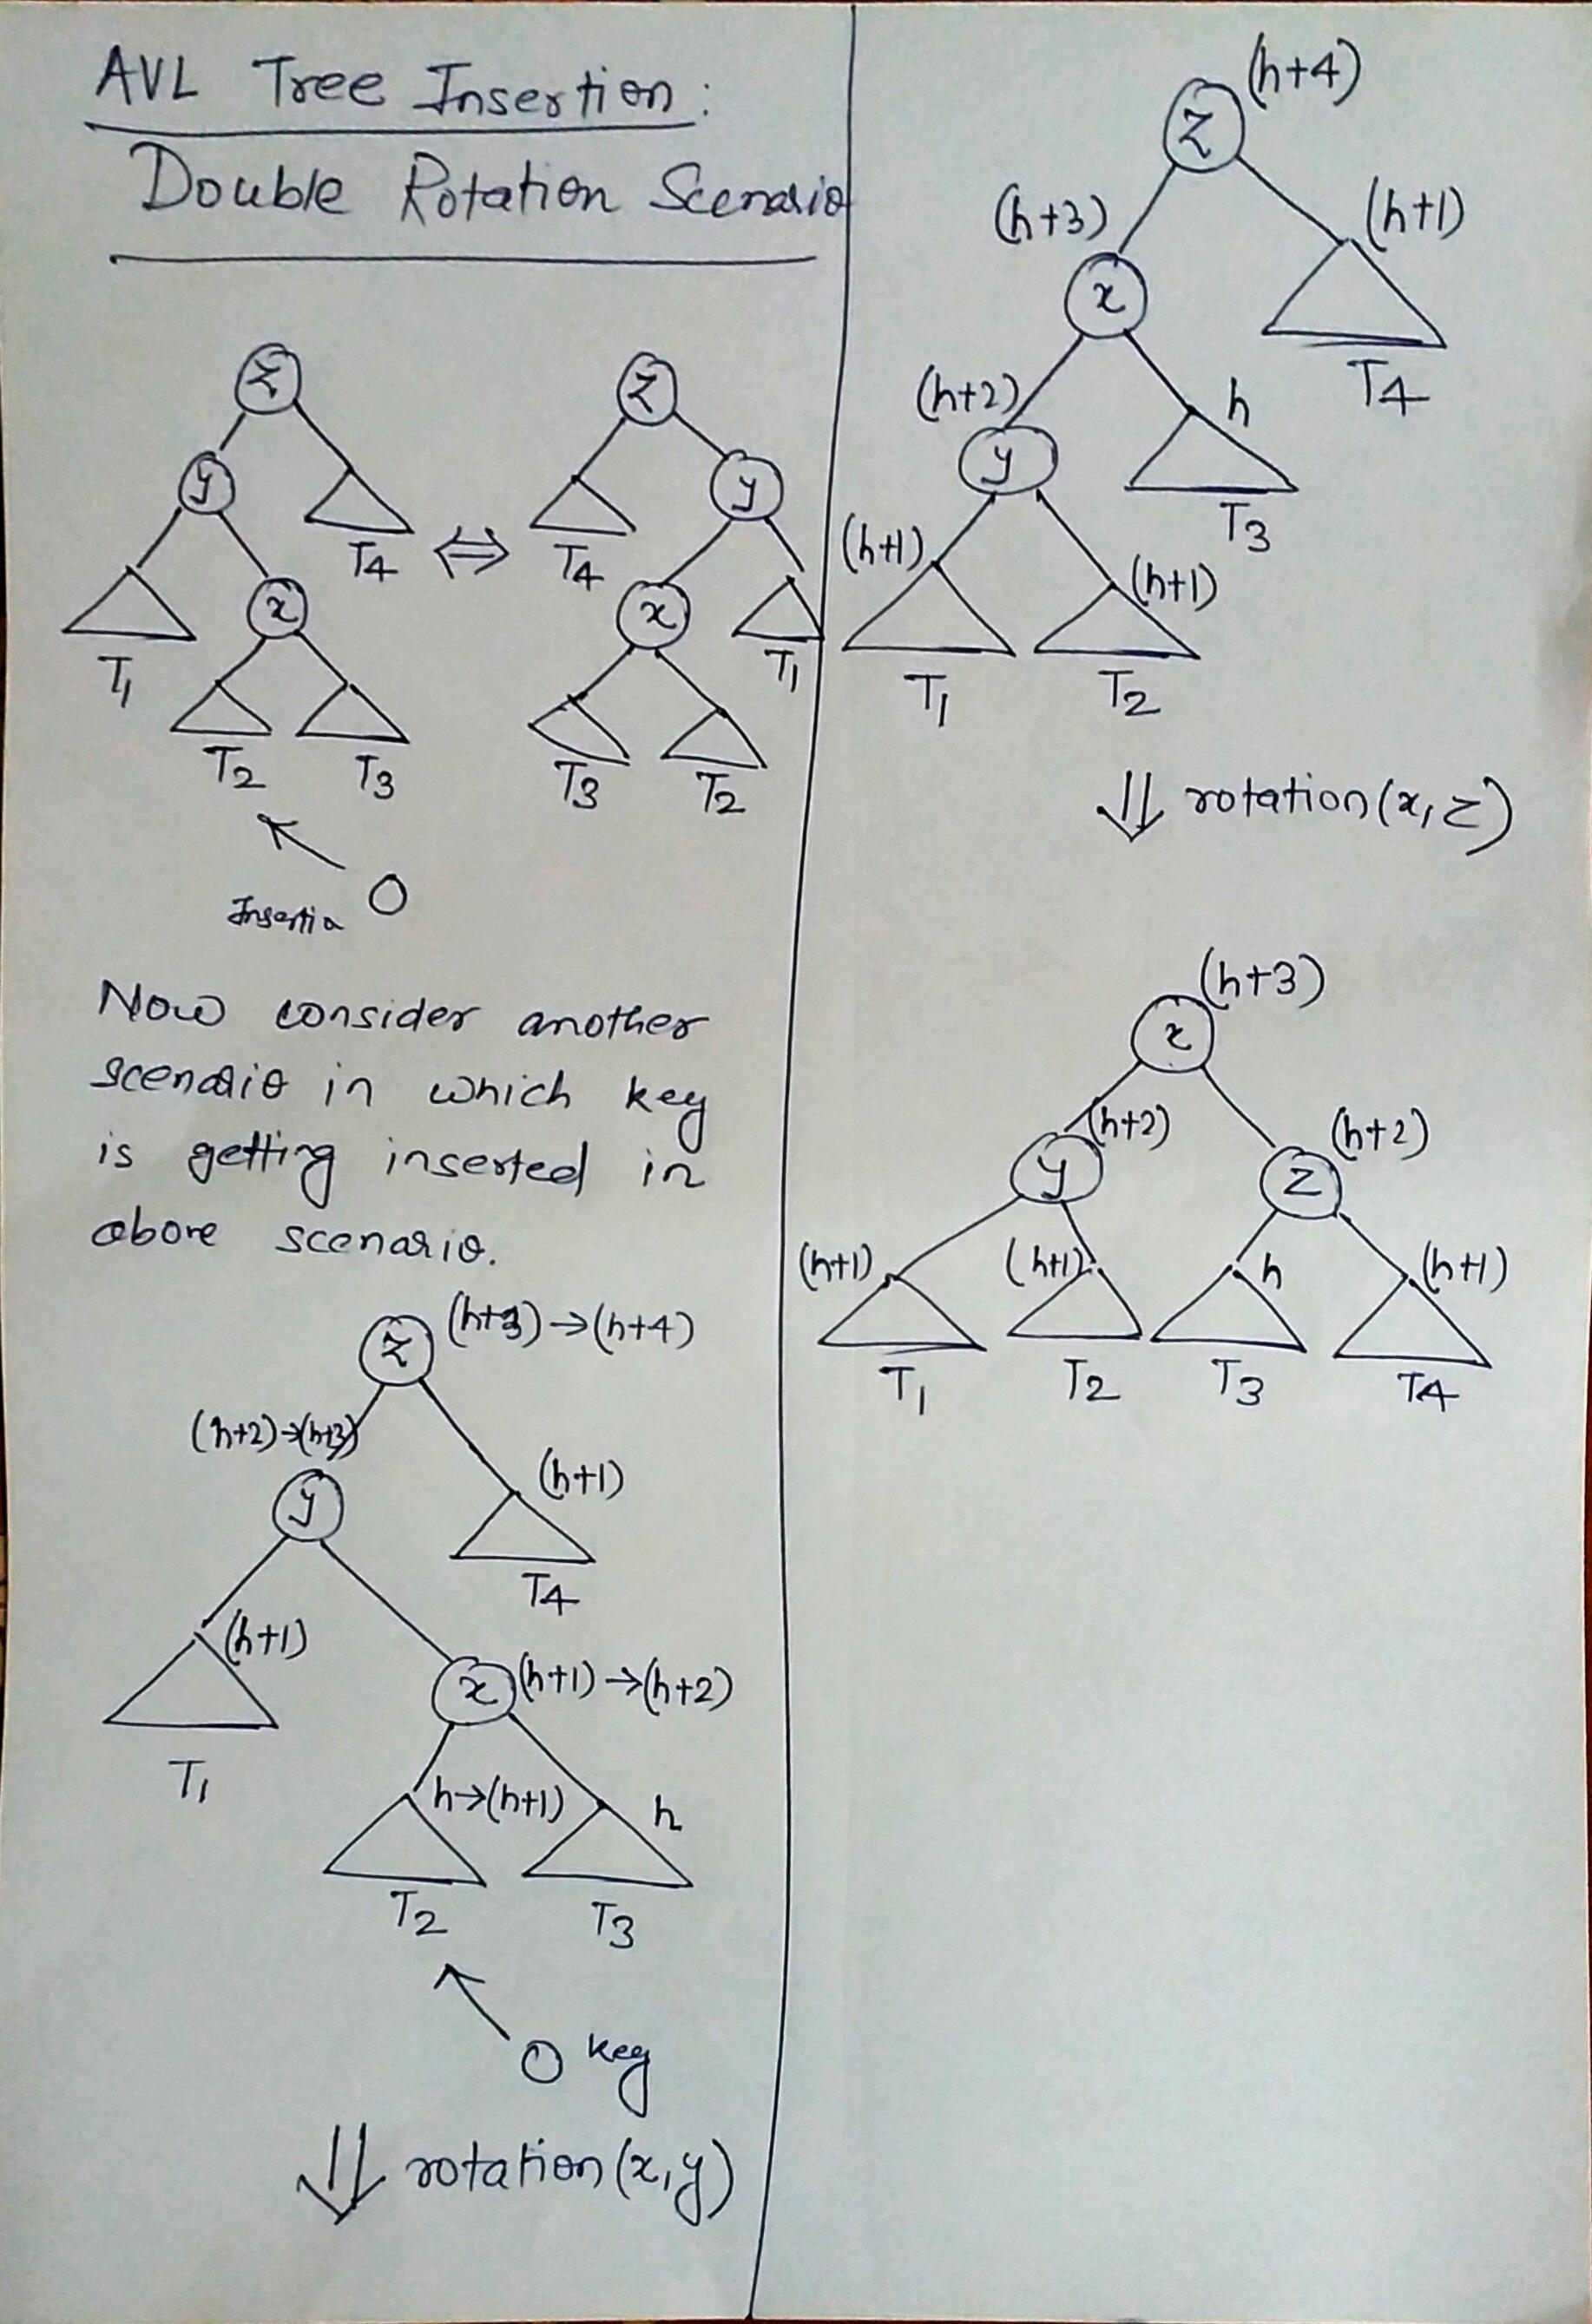 AVL Tree Insertion:
Double Rotation Scenario
z
z
y
y
T4
T4
x
x
T1
T1
T2
T3
T3
T2
Insertio
Now consider another
scenario in which key
is getting inserted in
above scenario.
z (h+3)→(h+4)
(h+2)→(h+3)
y
(h+1)
T4
(h+1)
x (h+1)→(h+2)
T1
h→(h+1)
h
T2
T3
key
rotation(x,y)
(h+4)
z
(h+3)
(h+1)
x
T4
(h+2)
h
y
T3
(h+1)
(h+1)
T1
T2
rotation(x,z)
(h+3)
x
(h+2)
(h+2)
y
z
(h+1)
(h+1)
h
(h+1)
T1
T2
T3
T4